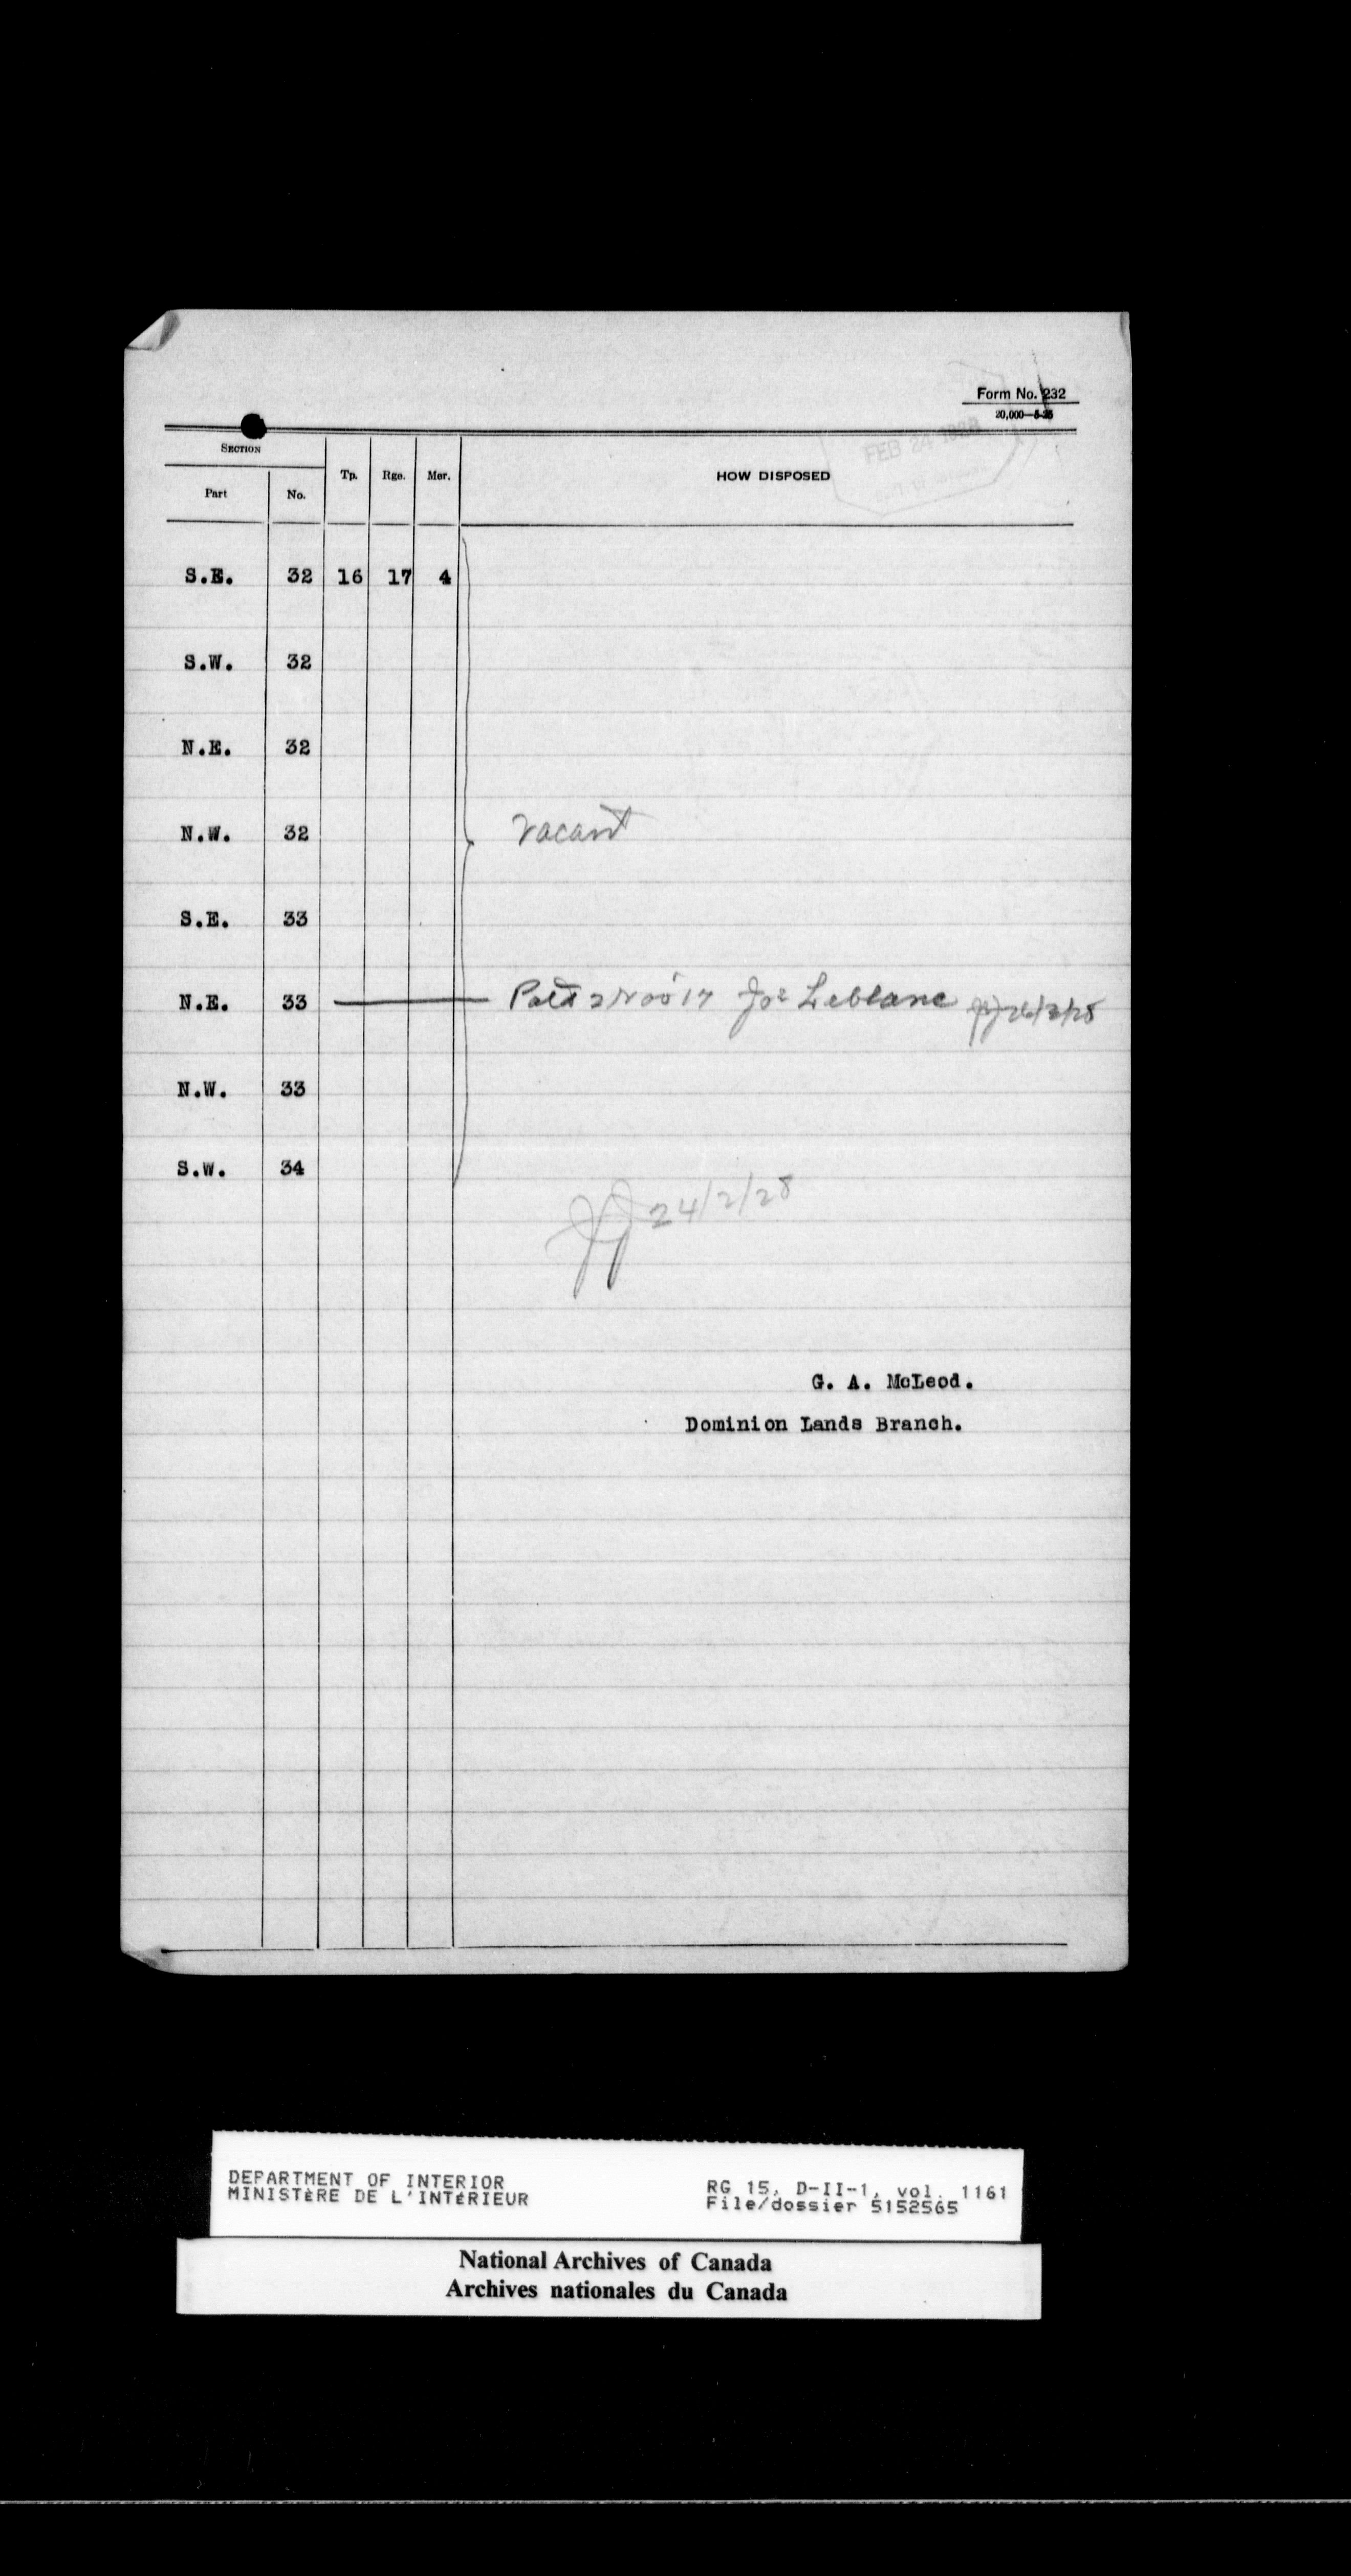 Form No. 232
20,000—5-25
FEB 24 1928
SECTION
Tp. Rge. Mer. HOW DISPOSED
Part No.
S.E. 32 16 17 4
S.W. 32
N.E. 32
N.W. 32 Vacant
S.E. 33
N.E. 33 2 Nov 17 Leblanc
N.W. 33
S.W. 34
24/2/28
G. A. McLeod.
Dominion Lands Branch.
DEPARTMENT OF INTERIOR RG 15, D-II-1, vol. 1161
MINISTÈRE DE L'INTÉRIEUR File/dossier 5152565
National Archives of Canada
Archives nationales du Canada